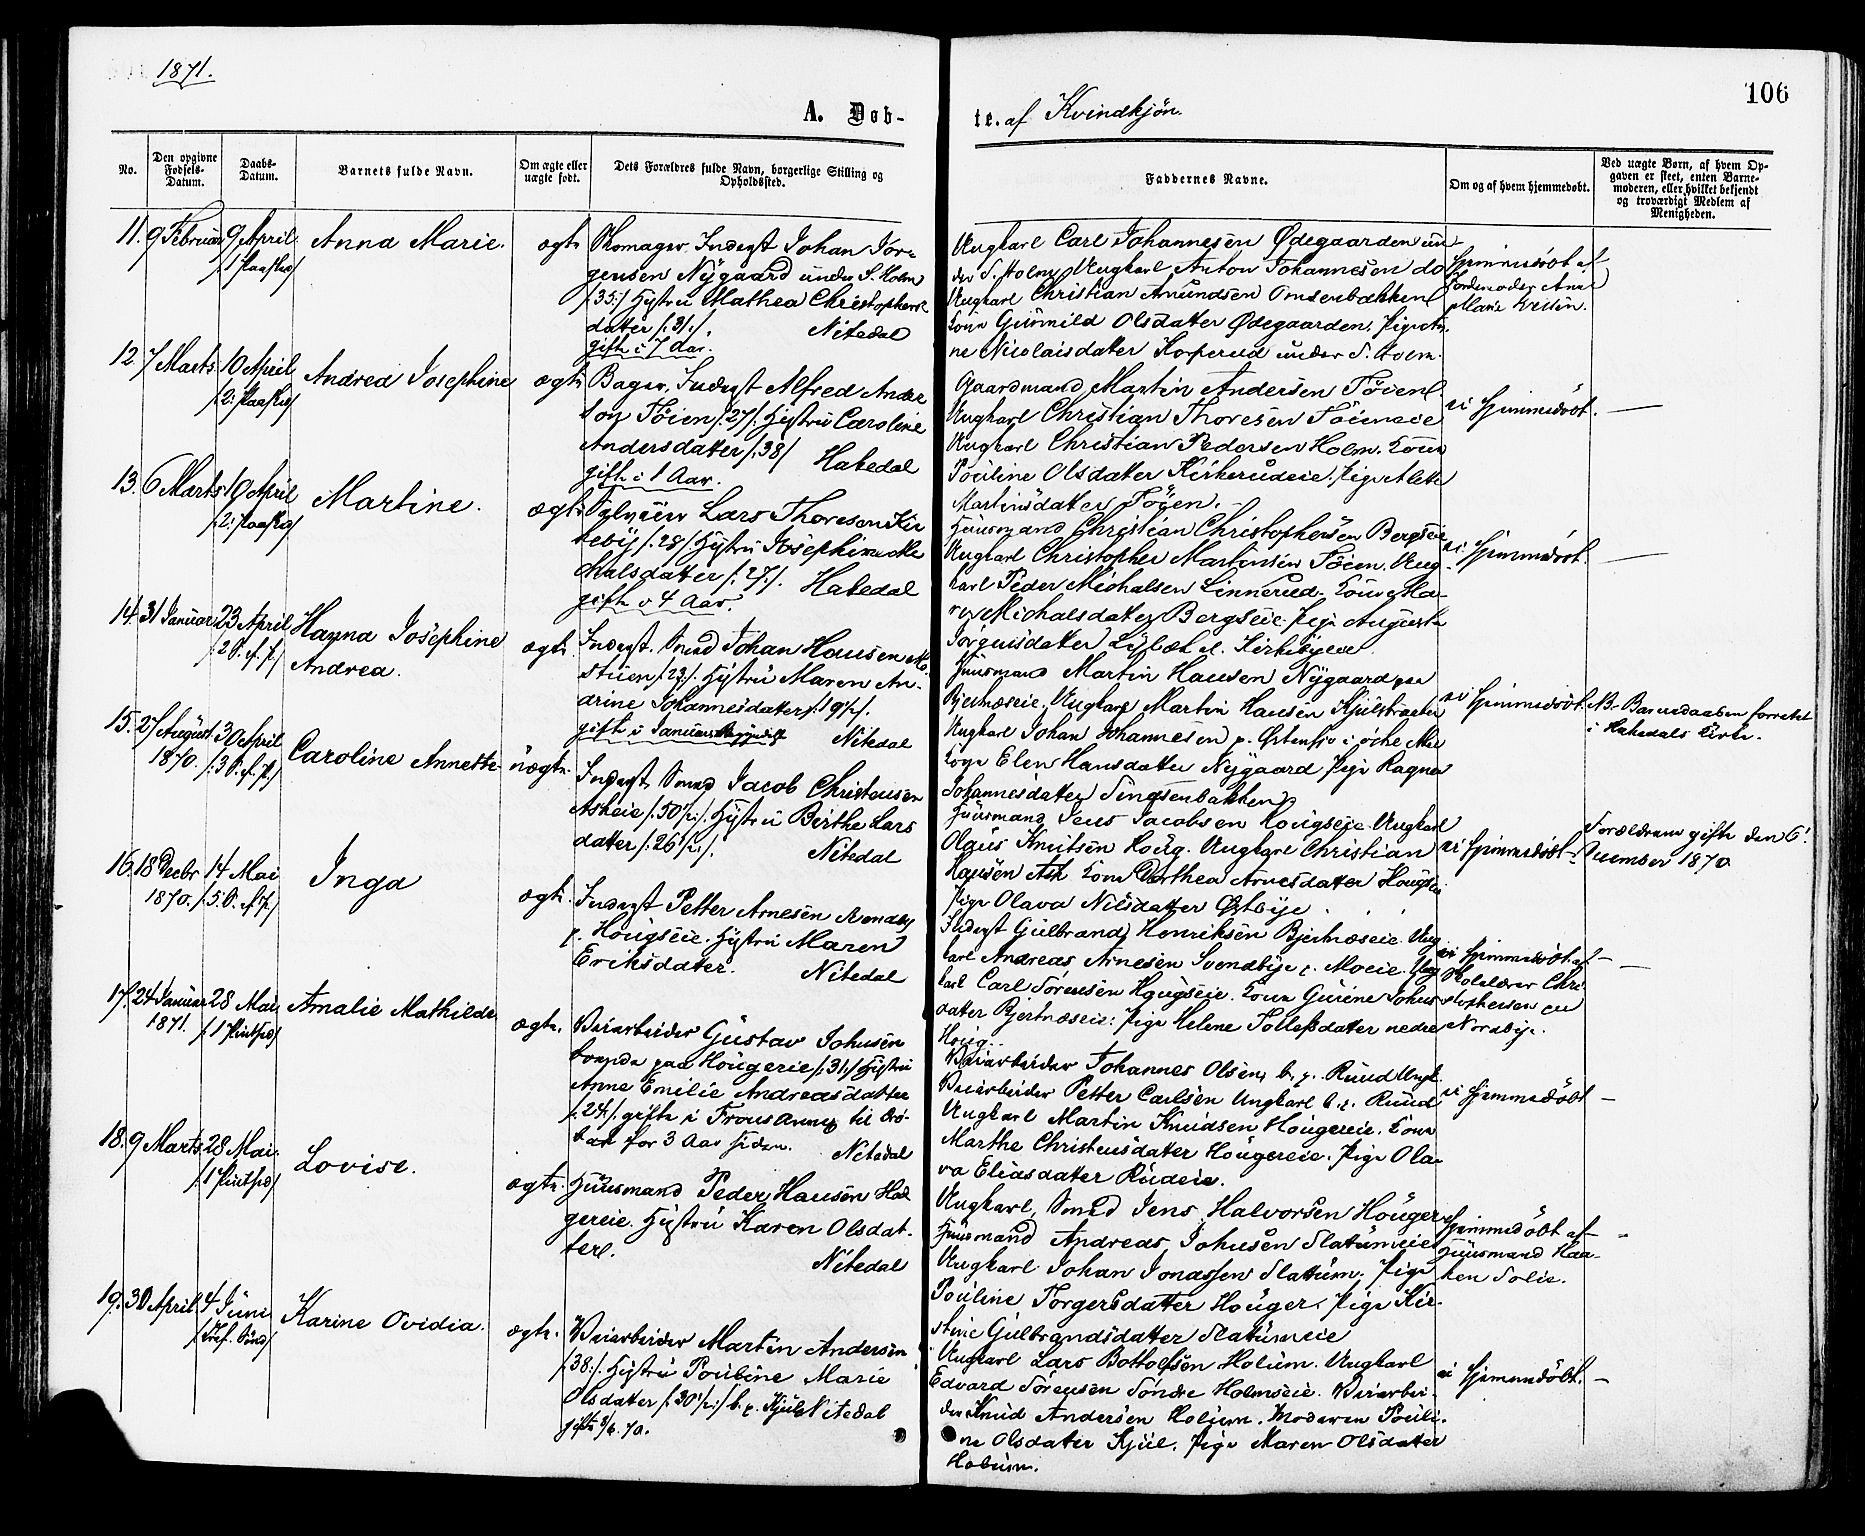 1871.
106
A. Døb-
te. af Kvindkjøn.
No.
Den opgivne Fødsels-Datum.
Daabs-Datum.
Barnets fulde Navn.
Om ægte eller uægte født.
Dets Forældres fulde Navn, borgerlige Stilling og Opholdssted.
Faddernes Navne.
Om og af hvem hjemmedøbt.
Ved uægte Børn, af hvem Op-
gaven er skeet, enten Barne-
moderen, eller hvilket bekjendt
og troværdigt Medlem af
Menigheden.
11. 9 Februar 9 April Anna Marie. ægte
/1 Paaskd/
Skomager, Inderst Johan Jør-
gensen Nygaard under S. Holm
/:35:/ Hustru Mathea Christophers-
datter /:31:/. Nitedal
gifte i 7 Aar.
Ungkarl Carl Johannesen Ødegaarden un-
der S. Holm, Ungkarl Anton Johannesen do
Ungkarl Christian Amundsen
Kone Gunnild Olsdatter Ødegaarden, Pige
ne Nicolaisdatter Korperud under S. Holm.
Hjemmedøbt af
Jordemoder Anne
Marie
12. 7 Marts 10 April Andrea Josephine ægte
/:2: Paaskd/
Bager, Inderst Alfred Ander
son Töien /:27/. Hustru Caroline
Andersdatter /:38/ Hakedal
gifte i 1 Aar.
Gaardmand Martin Andersen Töien.
Ungkarl Christian Thoresen Töieneie
Ungkarl Christian Pedersen Holm. Kone
Pouline Olsdatter Kirkerudeie, Pige Alette
Martinsdatter Töien.
ei Hjemmedøbt. —
13. 6 Marts 10 April Martine. ægte
/:2: Paaskd/
Lars Thoresen Kir
keby /:28/ Hustru Josephine Mi
chalsdatter /:27:/. Hakedal
gifte i 4 Aar.
Huusmand Christian Christophersen Bergseie
Ungkarl Christopher Martinsen Töien, Ung-
karl Peder Michalsen Linnerud. Kone Ma-
ren Michalsdatter Bergseie. Pige Augusta
Jörgensdatter
ei Hjemmedøbt. —
14. 31 Januar 23 April Hanna Josephine ægte
/:2 S. ef. P./ Andrea.
Inderst. Smed Johan Hansen Mo
stuen /:23:/. Hustru Maren An-
drine Johannesdatter /:19½/.
gifte i Januar Nitedal
Huusmand Martin Hansen Nygaard paa
Bjertnæseie. Ungkarl Martin Hansen
Ungkarl Johan Johannesen p. Østensjo i østre Aker
Kone Elen Hansdatter Nygaard Pige Ragna
Johannesdatter
ei Hjemmedøbt. NB. Barnedaaben forrettet
i Hakedals Kirke.
15. 27 August 30 April Caroline Annette. uægte.
1870. /:3 S. ef. P./
Inderst, Smed Jacob Christensen
Askeie /:50½:/. Hustru Birthe Lars
datter /:26½:/. Nitedal
Huusmand Jens Jacobsen Hougseie. Ungkarl
Olaus Knutsen Houg. Ungkarl Christian
Hansen Ask Kone Dorthea Arnesdatter Hougseie
Pige Olava Nilsdatter Østbye
ei Hjemmedøbt — Forældrene gifte den 6
December 1870
16. 18 Decbr 14 Mai Inga ægte.
1870. /:5 S. ef. P./
Inderst Petter Arnesen
p. Hougseie. Hustru Maren
Eriksdatter. Nitedal
Inderst Gulbrand Henriksen Bjertnæseie. Ung
karl Andreas Arnesen Svendbye p. Moeie. Ung
karl Carl Sörensen Hougseie. Kone Gurine Johns
datter Bjertnæseie: Pige Helene Tollefsdatter nedre
Houg.
Hjemmedøbt af —
Skolelærer Chri
stophersen
Nordbye.
17. 24 Januar 28 Mai Amalie Mathilde ægte.
1871. /:1 Pintsd/
Veiarbeider Gustav Johnsen
boende paa Hougereie /:31:/ Hustru
Anne Emilie Andreasdatter
/:24:/. gifte i til Drö-
bak for 3 Aar siden. Nitedal
Veiarbeider Johannes Olsen, b. p. Ruud Ungk.
Veiarbeider Petter Carlsen Ungkarl b. p. Ruud
Ungkarl Martin Knudsen Hougereie. Kone
Marthe Christensdatter Hougereie. Pige Ola-
va Eliasdatter Rudeie.
ei Hjemmedøbt —
18. 9 Marts 28 Mai Lovise. ægte.
/:1 Pintsd/
Huusmand Peder Hansen Hou
gereie. Hustru Karen Olsdat-
ter. Nitedal
Ungkarl, Smed Jens Halvorsen Houger
Huusmand Andreas Johnsen Slattumeie
Ungkarl Johan Jonassen Slattum. Pige
Pouline Torgersdatter Houger. Pige Kir-
stine Gulbrandsdatter Slattumeie
Hjemmedøbt af — —
Huusmand Haa-
ken Solie.
19. 30 April 4 Juni Karine Ovidia. ægte.
/:Tref. Sönd/
Veiarbeider Martin Andersen
/:38:/. Hustru Pouline Marie
Olsdatter /:30½:/ b. p. Kjul Nitedal
gifte 3/6. 70.
Ungkarl Lars Bottolfsen Holum. Ungkarl
Edvard Sörensen Söndre Holmseie. Veiarbei-
der Knud Andersen Holum. Moderen Pouli-
ne Olsdatter Kjul. Pige Maren Olsdatter
Holum.
ei Hjemmedøbt. —